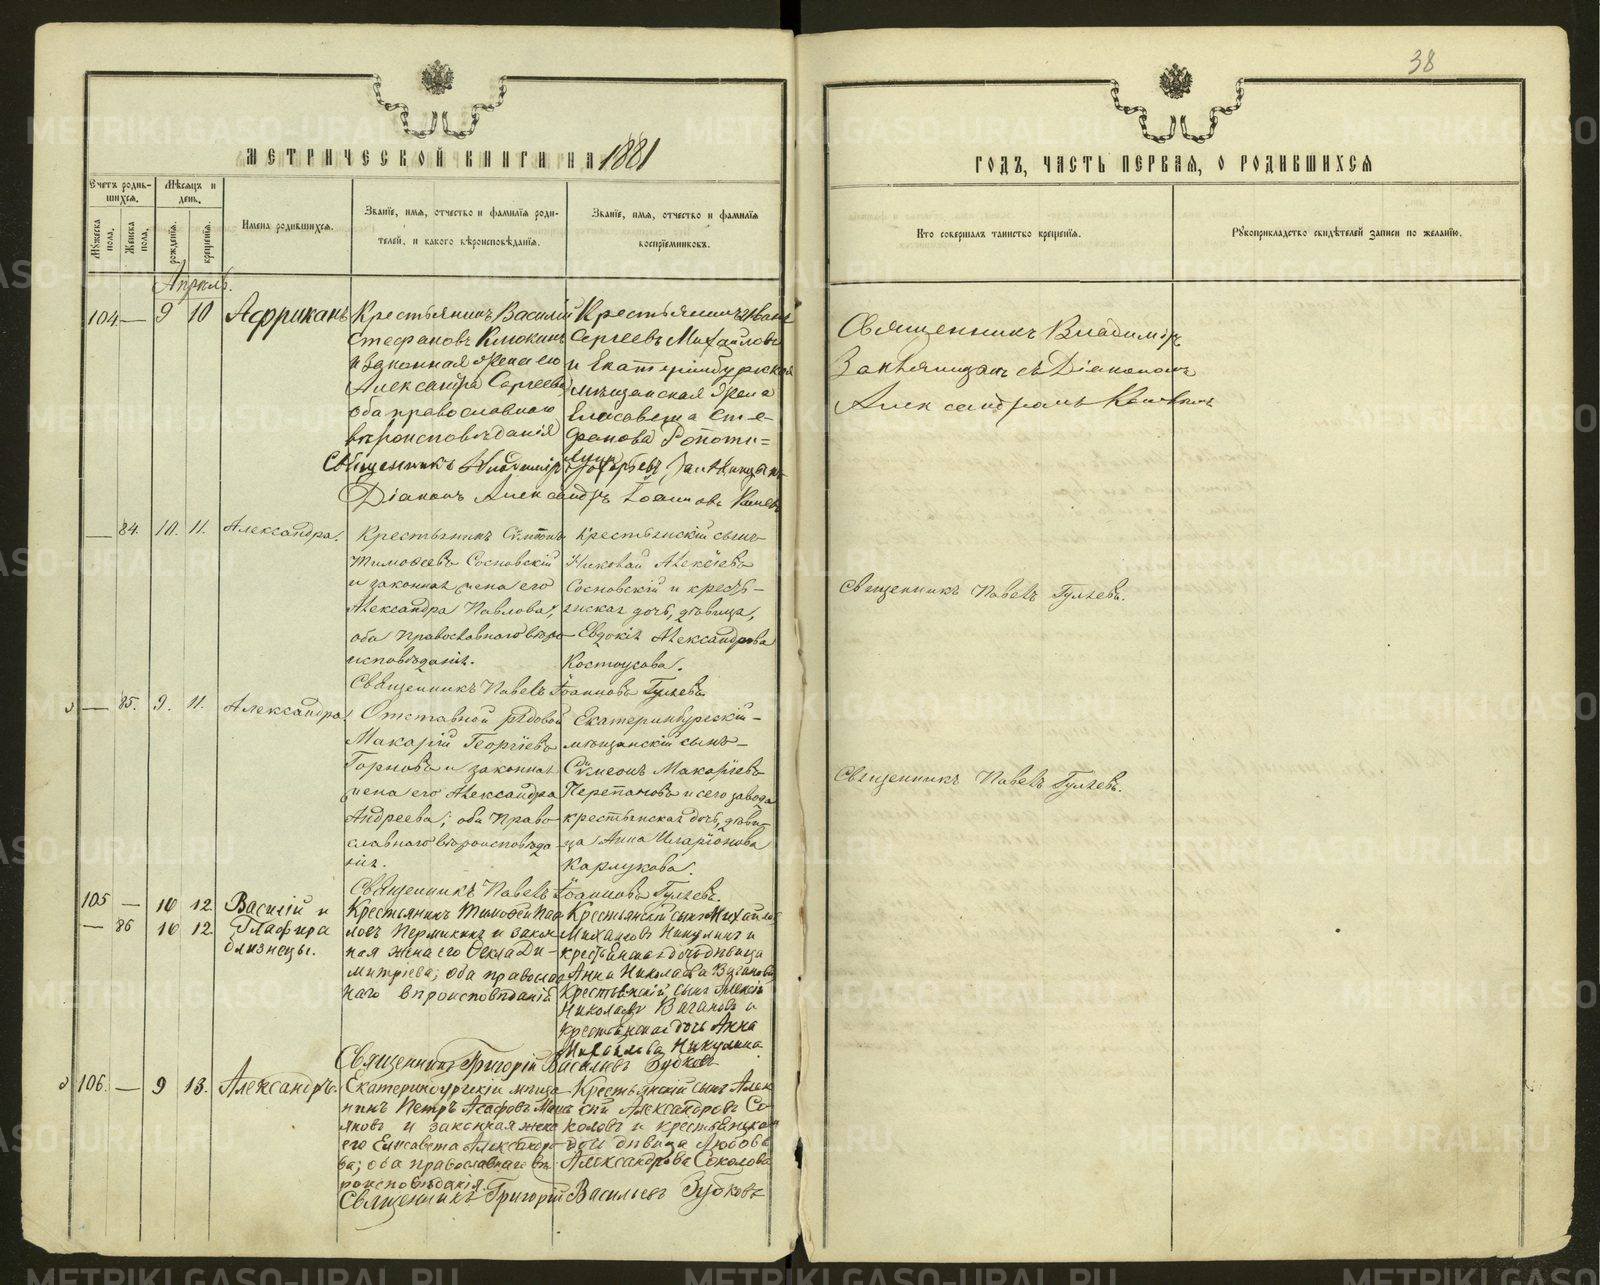 38
МЕТРИЧЕСКОЙ КНИГИ НА 1881
ГОДЪ, ЧАСТЬ ПЕРВАЯ, О РОДИВШИХСЯ
Счетъ родив-
шихся.
Мѣсяцъ и
день.
Мужеска
пола.
Женска
пола.
рожденія.
крещенія.
Имена родившихся.
Званіе, имя, отчество и фамилія роди-
телей, и какого вѣроисповѣданія.
Званіе, имя, отчество и фамилія
воспріемниковъ.
Кто совершалъ таинство крещенія.
Рукоприкладство свидѣтелей записи по желанію.
Апрѣль.
104 — 9 10 Африканъ
Крестьянинъ Василій
Стефановъ Клюкинъ
и законная жена его
Александра Сергеева
оба православнаго
вѣроисповѣданія
Крестьянинъ Иванъ
Сергеевъ Михайловъ
и Екатеринбургская
мѣщанская жена
Елисавета Сте-
фанова
Священникъ Владиміръ
Діаконъ Александръ Іоанновъ
Священникъ Владиміръ
съ Діакономъ
Александромъ
— 84. 10. 11. Александра.
Крестьянинъ Сѵмеонъ
Тимоѳеевъ Сосновскій
и законная жена его
Александра Павлова;
оба Православнаго вѣро-
исповѣданія.
Крестьянскій сынъ
Николай Алексѣевъ
Сосновскій и кресть-
янская дочь, дѣвица,
Евдокія Александрова
Костоусова.
Священникъ Павелъ Іоанновъ Гуляевъ
Священникъ Павелъ Гуляевъ.
— 85. 9. 11. Александра.
Отставной рядовой
Макарій Георгіевъ
Горновъ и законная
жена его Александра
Андреева; оба Право-
славнаго вѣроисповѣда-
нія.
Екатеринбургскій
мѣщанскій сынъ
Сѵмеонъ Макаріевъ
Перетановъ и сего завода
крестьянская дочь, дѣви-
ца Анна Иларіонова
Карлукова.
Священникъ Павелъ Іоанновъ Гуляевъ.
Священникъ Павелъ Гуляевъ.
105 — 10 12 Василій и
— 86 10 12 Глафира
близнецы.
Крестьянинъ Тимоѳей Пав
ловъ Пермикинъ и закон
ная жена его Ѳекла Ди-
митріева; оба православ
наго вѣроисповѣданія
Крестьянскій сынъ Михаилъ
Михаиловъ Никулинъ и
крестьянская дочь дѣвица
Анна Николаева Ваганова
Крестьянскій сынъ Алексѣй
Николаевъ Вагановъ и
крестьянская дочь Анна
Михайлова Никулина.
Священникъ Григорій Васильевъ Зубковъ
106. — 9 13. Александръ.
Екатеринбургскій мѣща-
нинъ Петръ Агафовъ
и законная жена
его Елисавета Александро-
ва; оба православнаго вѣ-
роисповѣданія.
Крестьянскій сынъ Алек
сѣй Александровъ Со-
коловъ и крестьянская
дочь дѣвица Любовь
Александрова Соколова
Священникъ Григорій Васильевъ Зубковъ
METRIKI.GASO-URAL.RU